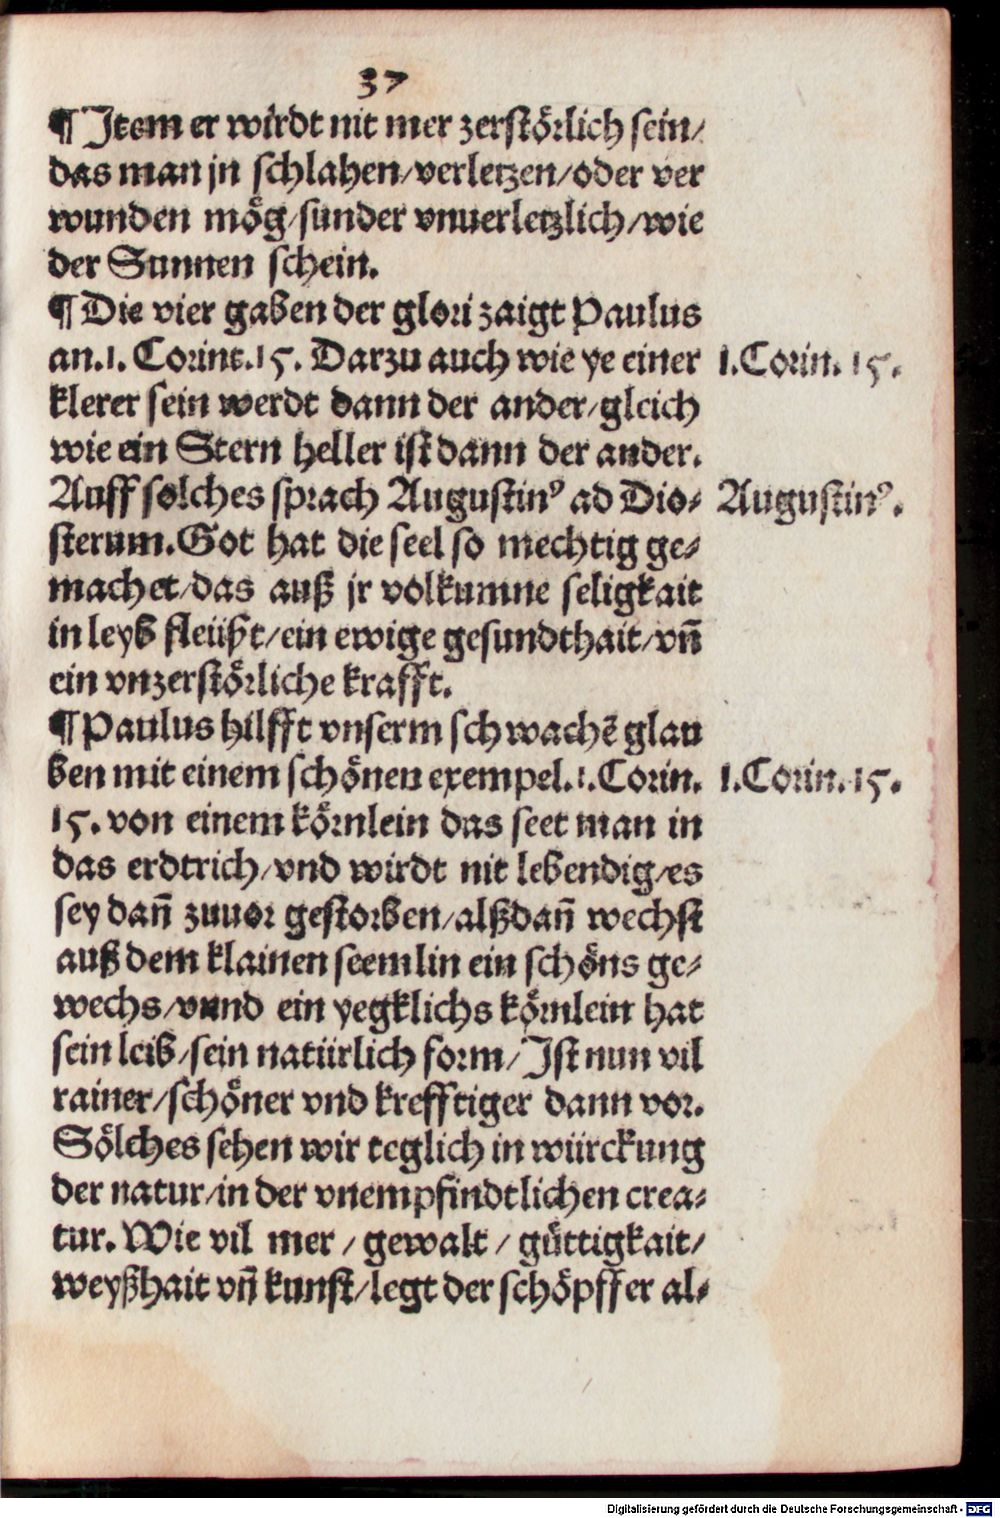 37
¶ Item er wirdt nit mer zerstörlich sein/
das man jn schlahen/verletzen/oder ver
wunden mög/sunder vnuerletzlich/wie
der Sunnen schein.
¶ Die vier gaben der glori zaigt Paulus
an.1. Corint.15. Darzu auch wie ye einer
1.Corin. 15.
klerer sein werdt dann der ander/gleich
wie ein Stern heller ist dann der ander.
Auff solches sprach Augustinꝰ ad Dio⸗
Augustinꝰ.
sterum.Got hat die seel so mechtig ge⸗
machet/das auß jr volkumne seligkait
in leyb fleüßt/ein ewige gesundthait/vñ
ein vnzerstörliche krafft.
¶ Paulus hilfft vnserm schwachē glau
ben mit einem schönen exempel.1.Corin.
1.Corin.15.
15. von einem körnlein das seet man in
das erdtrich/vnd wirdt nit lebendig/es
sey dañ zuuor gestorben/alßdañ wechst
auß dem klainen seemlin ein schöns ge⸗
wechs/vnnd ein yegklichs körnlein hat
sein leib/sein natürlich form/Ist nun vil
rainer/schöner vnd krefftiger dann vor.
Sölches sehen wir teglich in würckung
der natur/in der vnempfindtlichen crea⸗
tur. Wie vil mer / gewalt / güttigkait/
weyßhait vñ kunst/legt der schöpffer al⸗
Digitalisierung gefördert durch die Deutsche Forschungsgemeinschaft - DFG